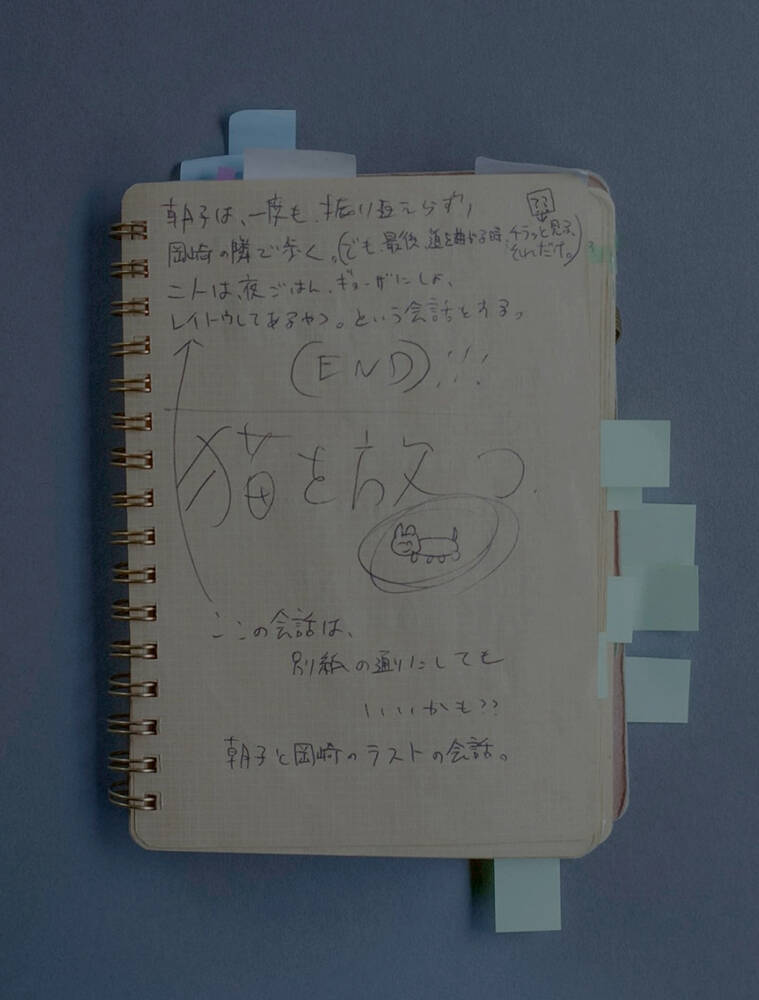 朝子は、一度も、振り返えらず、
岡崎の隣で歩く。(でも、最後、道を曲がる時、チラッと見る、それだけ。)
二人は、夜ごはん、ギョーザにしよ、
レイトウしてあるやつ。という会話をする。
(END)!!!
猫を放つ.
ここの会話は、
別紙の通りにしても
いいかも??
朝子と岡崎のラストの会話。